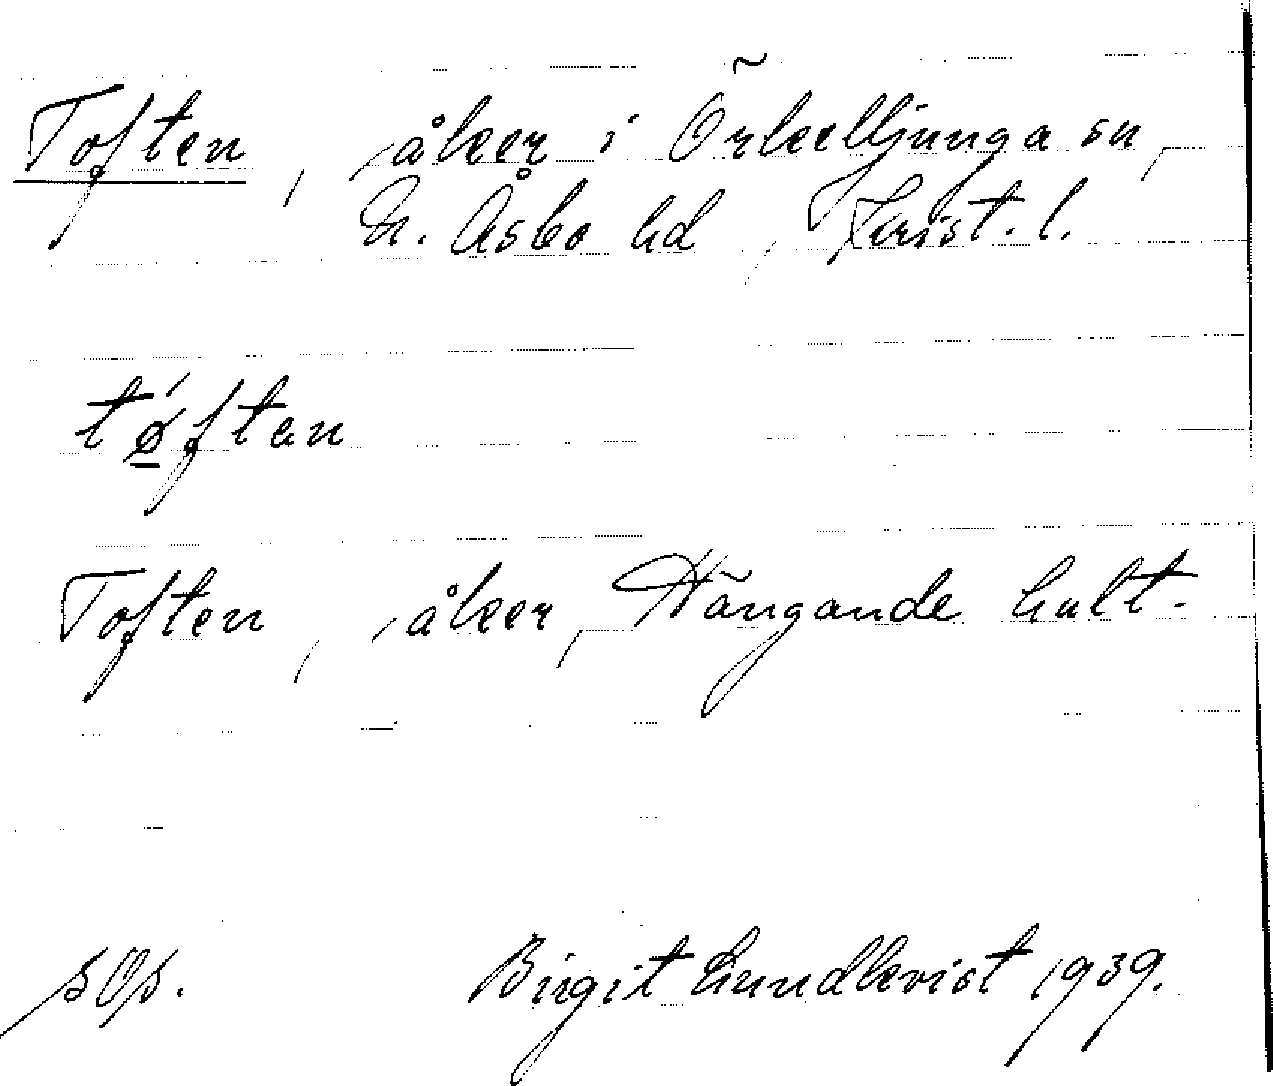 Toften, åker i Örkelljunga sn,
N. Åsbo hd, Krist. l.
tǿftan
Toften, åker, Hängande hult.
Birgit Lundkvist 1939.